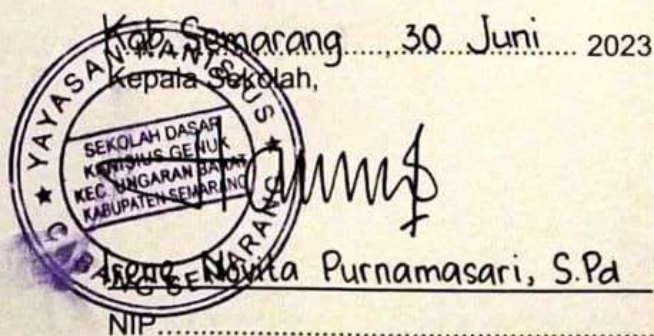 Kab. Semarang....., 30 Juni.... 2023
Kepala Sekolah,
★ YAYASAN KANISIUS ★
SEKOLAH DASAR
KANISIUS GENUK
KEC. UNGARAN BARAT
KABUPATEN SEMARANG
CABANG SEMARANG
Irene Novita Purnamasari, S.Pd
NIP..............................